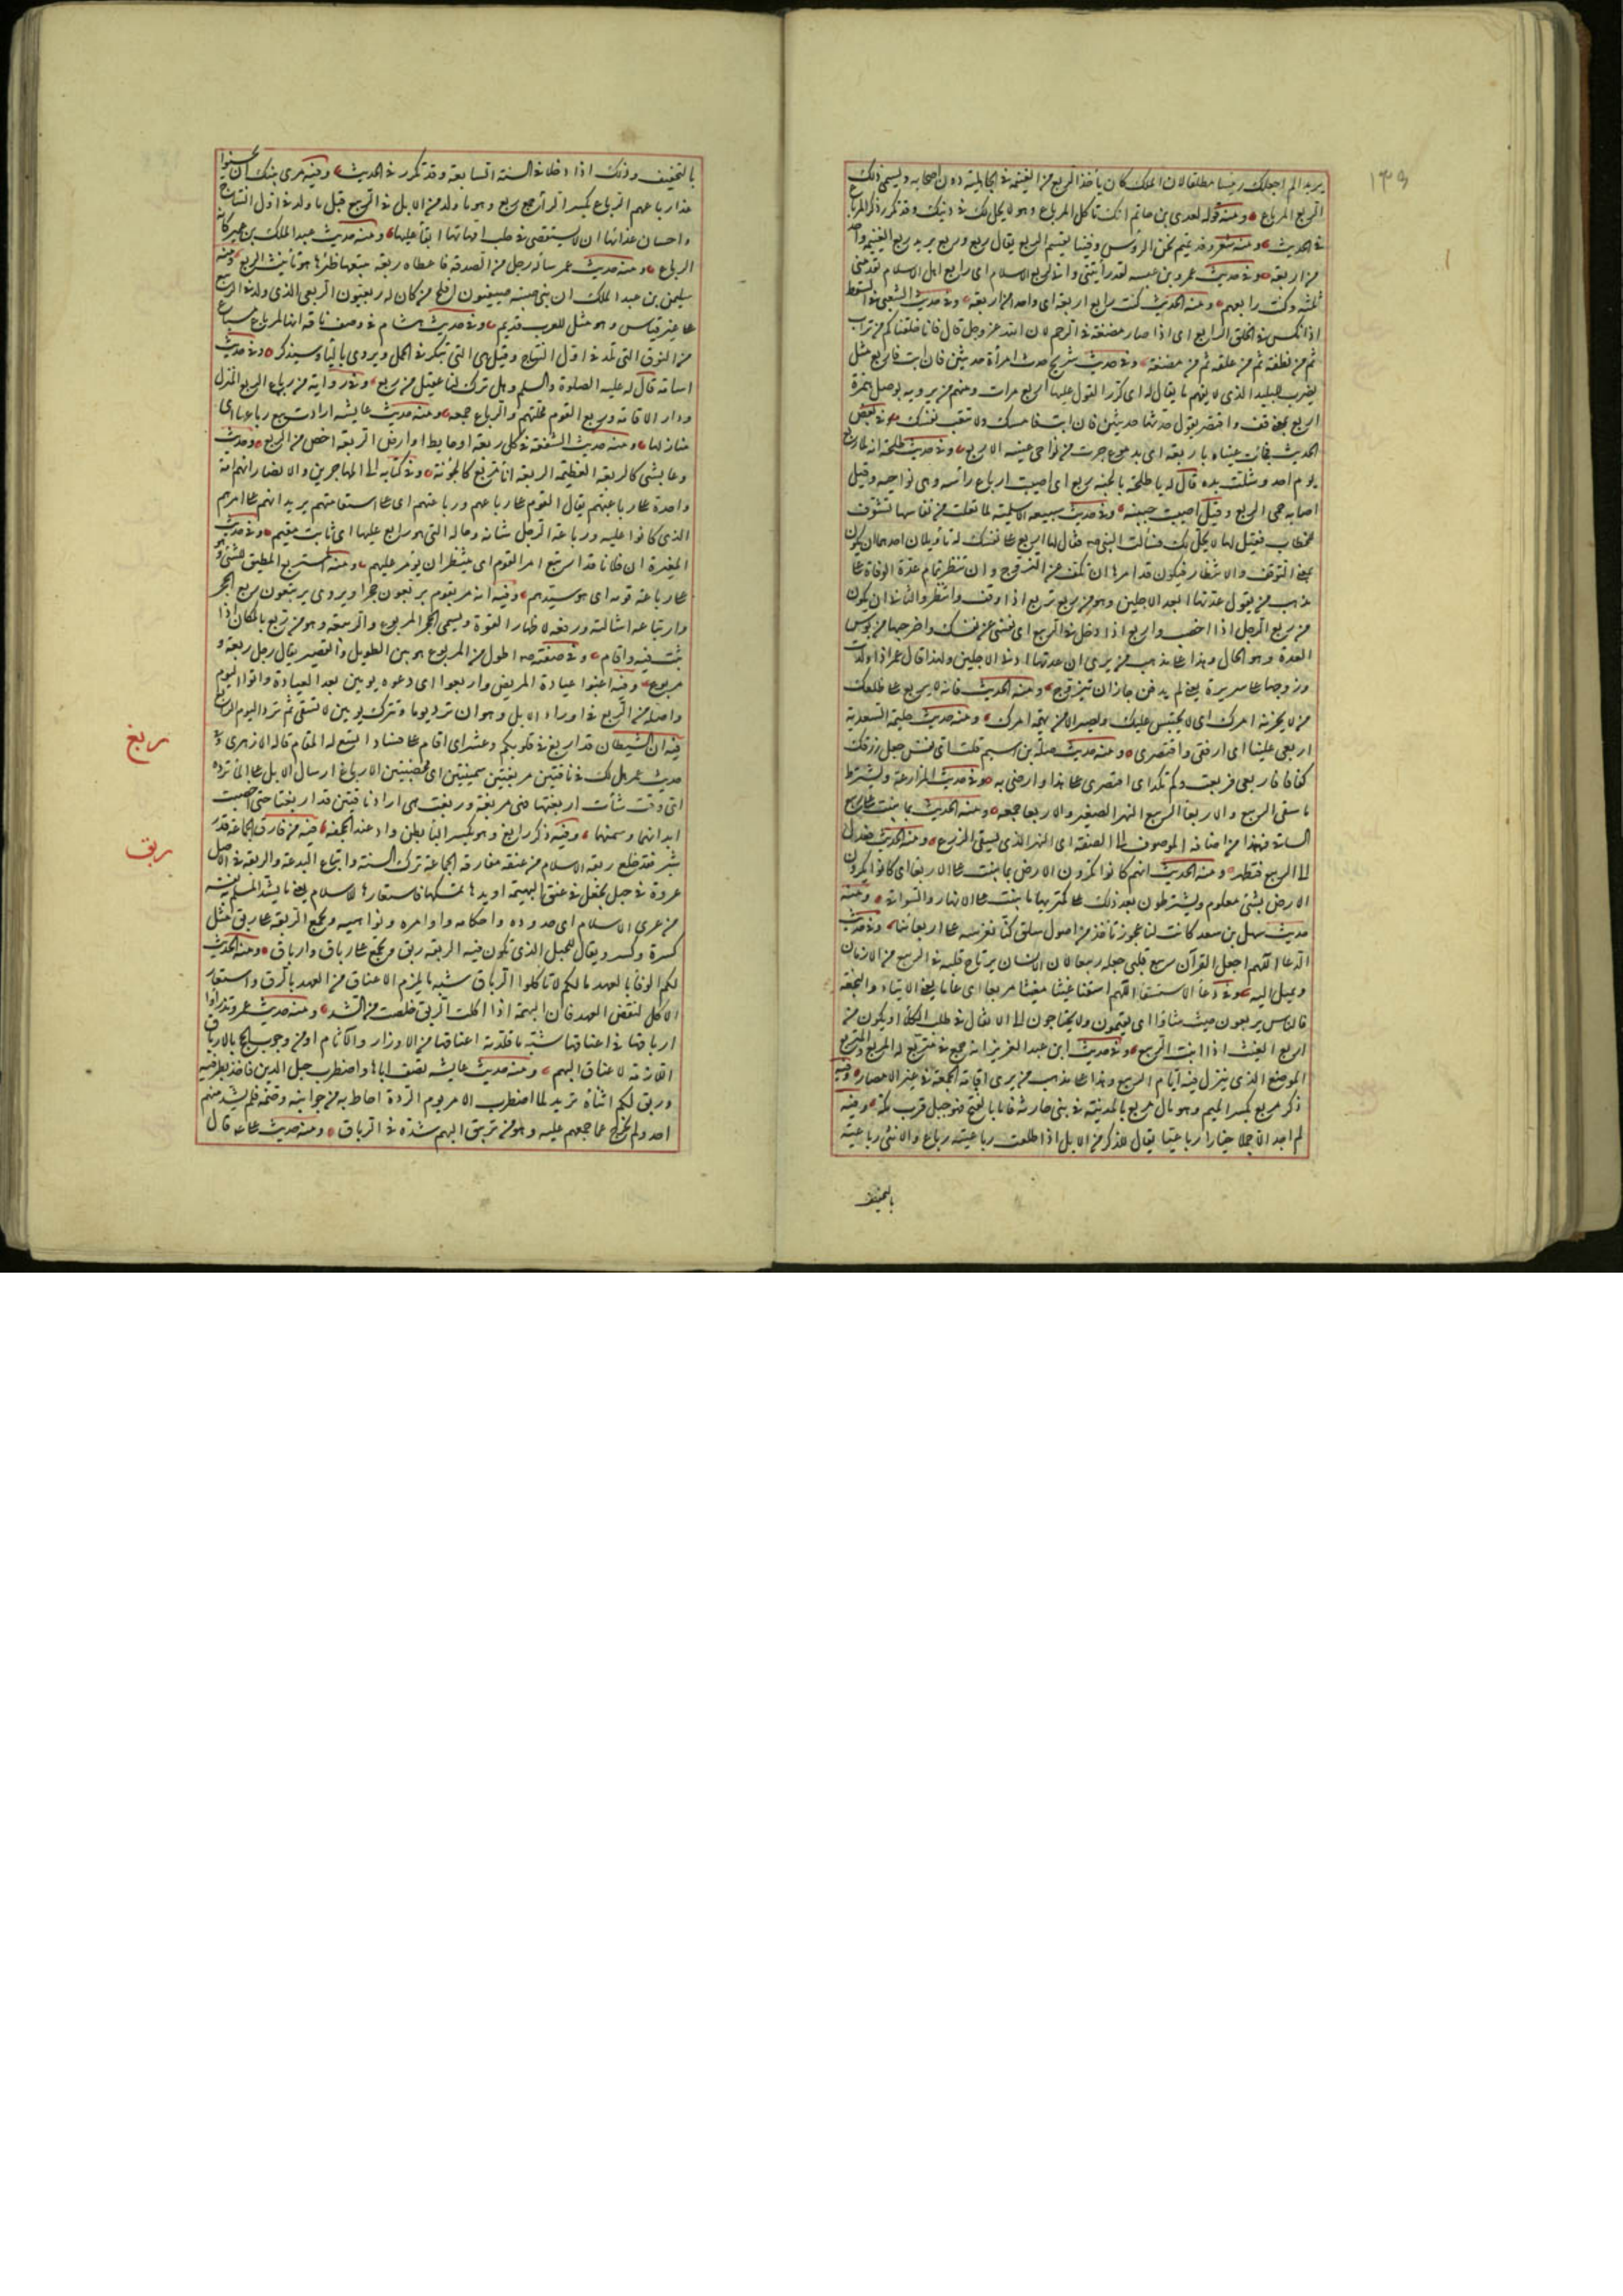 ١٣٩
يريد الم اجعلك رئيسا مطلقا لان الملك كان يأخذ الربع من الغنيمة في الجاهلية دون اصحابه ويسمى ذلك
الربع المرباع ومنه قوله لعدي بن حاتم انك تأكل المرباع وهو لا يحل لك في دينك وقد تكرر ذكر المرباع
في الحديث ومنه شعر وفد تميم نحن الرؤس وفينا يقسم الربع يقال ربع وربع يريد ربع الغنيمة واحد
من اربعة وفي حديث عمرو بن عبسه لقد رأيتني واني لربع الاسلام اى رابع اهل الاسلام تقدمنى
ثلثة وكنت رابعهم ومنه الحديث كنت رابع اربعة اى واحد من اربعة وفي حديث الشعبى في السقط
اذا نكس في الخلق الرابع اى اذا صار مضغة في الرحم لان الله عز وجل قال فانا خلقناكم من تراب
ثم من نطفة ثم من علقة ثم من مضغة وفي حديث شريح حدث امرأة حديثين فان ابت فاربع مثل
يضرب للبليد الذى لا يفهم ما يقال له اى كرر القول عليها اربع مرات ومنهم من يرويه بوصل همزة
اربع بمعنى قف واقتصر يقول حدثها حديثين فان ابت فامسك ولا تتعب نفسك وفي بعض
الحديث فجائت عيناه باربعة اى بدموع جرت من نواحى عينيه الاربع وفي حديث طلحة انه لما ربع
يوم احد وشلت يده قال له باء طلحة بالجنة ربع اى اصيبت ارباع رأسه وهى نواحيه وقيل
اصابه حمى الربع وقيل اصيب جبينه وفي حديث سبيعه الاسلمية لما تعلت من نفاسها تشوفت
للخطاب فقيل لها لا يحل لك فسألت النبي صم فقال لها اربعي على نفسك له تأويلان احدهما ان يكون
بمعنى التوقف والانتظار فيكون قد امرها ان تكف عن التزوج وان تنتظر تمام عدة الوفاة على
مذهب من يقول عدتها ابعد الاجلين وهو من ربع يربع اذا وقف وانتظر والثاني ان يكون
من ربع الرجل اذا اخصب واربع اذا دخل في الربيع اى نفسى عن نفسك واخرجيها من بوس
العدة وسوء الحال وهذا على مذهب من يرى ان عدتها ادنى الاجلين ولهذا قال عمر اذا ولدت
وزوجها على سريره يعنى لم يدفن جاز ان تتزوج ومنه الحديث فانه لا يربع على ظلعك
من لا يحزنه امرك اى لا يحتبس عليك ويصبر الا من يهمه امرك ومنه حديث حليمة السعدية
اربعي علينا اى ارفقي واقتصري ومنه حديث صلة بن اشيم قلت اى نفس جعل رزقك
كفافا فاربعي فربعت ولم تكد اى اقتصري على هذا وارضي به وفي حديث المزارعة ويشترط
ما سقى الربيع والاربعاء الربيع النهر الصغير والاربعا جمعه ومنه الحديث بما ينبت على ربيع
الساقي فهذا من اضافة الموصوف الى الصفة اى النهر الذى يسقى الزرع ومنه الحديث فعدل
الى الربيع فتطهر ومنه الحديث انهم كانوا يكرون الارض بما ينبت على الاربعا اى كانوا يكرون
الارض بشئ معلوم ويشترطون بعد ذلك على مكتريها ما ينبت على الانهار والسواقى ومنه
حديث سهل بن سعد كانت لنا عجوز تأخذ من اصول سلق كنا نغرسه على اربعائنا وفي حديث
الدعا اللهم اجعل القرآن ربيع قلبي جعله ربيعا لان الانسان يرتاح قلبه في الربيع من الازمان
ويميل اليه وفي دعا الاستسقا اللهم اسقنا غيثا مغيثا مربعا اى عاما يغنى الارتياد والنجعة
فالناس يربعون حيث شاؤا اى يقيمون ولا يحتاجون الى الانتقال في طلب الكلأ او يكون من
اربع الغيث اذا انبت الربيع وفي حديث ابن عبد العزيز انه جمع في متربع له المربع والمتربع
الموضع الذى ينزل فيه ايام الربيع وهذا على مذهب من يرى اقامة الجمعة في غير الامصار وفيه
ذكر مربع بكسر الميم وهو مال مربع بالمدينة في بني حارثه فاما بالفتح فهو جبل قرب مكة وفيه
لم اجد الا جملا خيارا رباعيا يقال للذكر من الابل اذا طلعت رباعيته رباع والانثى رباعية
بالتخفيف
بالتخفيف وذلك اذا دخلا في السنة السابعة وقد تكرر في الحديث وفيه مري بنيك ان يحسنوا
غذا رباعهم الرباع بكسر الرا جمع ربع وهو ما ولد من الابل في الربيع قيل ما ولد في اول النتاج
واحسان غذائها ان لا يستقصى في حلب امهاتها ابقاً عليها ومنه حديث عبد الملك بن عمير كانه
الرباع ومنه حديث عمر سأله رجل من الصدقة فاعطاه ربعة يتبعها ظئراها هو تأنيث الربع ومنه
سليمن بن عبد الملك ان بني صبية صيفيون افلح من كان له ربعيون الربعي الذى ولد في الربيع
على غير قياس وهو مثل للعرب قديم وفي حديث هشام في وصف ناقة انها لمرباع مسياع
من النوق التى تلد في اول النتاج وقيل هى التى تبكر في الحمل ويروى باليا وسيذكر وفي حديث
اسامة قال له عليه الصلوة والسلم وهل ترك لنا عقيل من ربع وفي رواية من رباع الربع المنزل
ودار الاقامة وربع القوم محلتهم والرباع جمعه ومنه حديث عايشه ارادت بيع رباعها اى
منازلها ومنه حديث الشفعة في كل ربعة او حايط او ارض الربعة اخص من الربع وحديث
دعا بشى كالربعة العظيمة الربعة انا مربع كالجونة وفي كتابه الى المهاجرين والانصار انهم امة
واحدة على رباعتهم يقال القوم على رباعهم ورباعتهم اى على استقامتهم يريد انهم على امرهم
الذى كانوا عليه ورباعة الرجل شانه وحاله التى هو رابع عليها اى ثابت مقيم وفي حديث
المغيرة ان فلانا قد ارتبع امر القوم اى ينتظر ان يؤمر عليهم ومنه المستربع المطيق للشئ وهو
على رباعة قومه اى هو سيدهم وفيه انه مر بقوم يربعون حجرا ويروى يرتبعون ربع الحجر
وارتباعه اشالته ورفعه لاظهار القوة ويسمى الحجر المربوع والربيعة وهو من ربع بالمكان اذا
ثبت فيه واقام وفي صفته صم اطول من المربوع هو بين الطويل والقصير يقال رجل ربعة و
مربوع وفيه اغبوا عيادة المريض واربعوا اى دعوه يومين بعد العيادة وأتوا اليوم
واصله من الربع في اوراد الابل وهو ان ترد يوما وتترك يومين لا تسقى ثم ترد اليوم الرابع
ربغ
فيه ان الشيطان قد اربغ في قلوبكم وعشش اى اقام على فساد اتسع له المقام قاله الازهرى وفي
حديث عمر هل لك في ناقتين مربغتين سمينتين اى مخصبتين الارباغ ارسال الابل على الماء ترده
اى وقت شأت اربغتها فهى مربغة وربغت هى اراد ناقتين قد اربغتا حتى اخصبت
ابدانهما وسمنتا وفيه ذكر رابغ وهو بكسر البا بطن واد عند الجحفة
ربق
فيه من فارق الجماعة قدر
شبر فقد خلع ربقة الاسلام من عنقه مفارقة الجماعة ترك السنة واتباع البدعة والربقة في الاصل
عروة في حبل يجعل في عنق البهيمة او يدها تمسكها فاستعارها للاسلام يعنى ما يشد المسلم به نفسه
من عرى الاسلام اى حدوده واحكامه واوامره ونواهيه ويجمع الربقة على ربق مثل
كسرة وكسر ويقال للحبل الذى تكون فيه الربقة ربق ويجمع على رباق وارباق ومنه الحديث
لكم الوفا بالعهد ما لم تأكلوا الرباق شبه ما يلزم الاعناق من العهد بالربق واستعار
الاكل لنقض العهد فان البهيمة اذا اكلت الربق خلصت من الشد ومنه حديث عمر وتذروا
ارباقها في اعناقها شبه ما قلدته اعناقها من الاوزار والآثام او من وجوب الحج بالارباق
اللازمة لاعناق البهم ومنه حديث عايشه تصف اباها واضطرب حبل الدين فاخذ بطرفيه
وربق لكم اثناه تريد لما اضطرب الامر يوم الردة احاط به من جوانبه وضمه فلم يشذ منهم
احد ولم يخرج عما جمعهم عليه وهو من تربيق البهم شده في الرباق ومنه حديث على قال